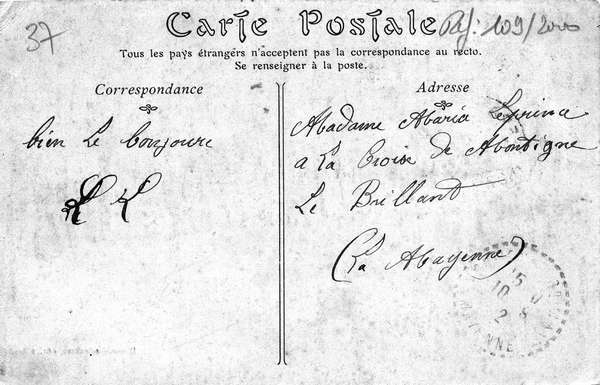 37
Carte Postale
Réf: 109/2000
Tous les pays étrangers n'acceptent pas la correspondance au recto.
Se renseigner à la poste.
Correspondance
bien le bonjoure
Adresse
Madame Maria Leprince
a La Croise de Montigne
Le Brillant
(La Mayenne)
15
10